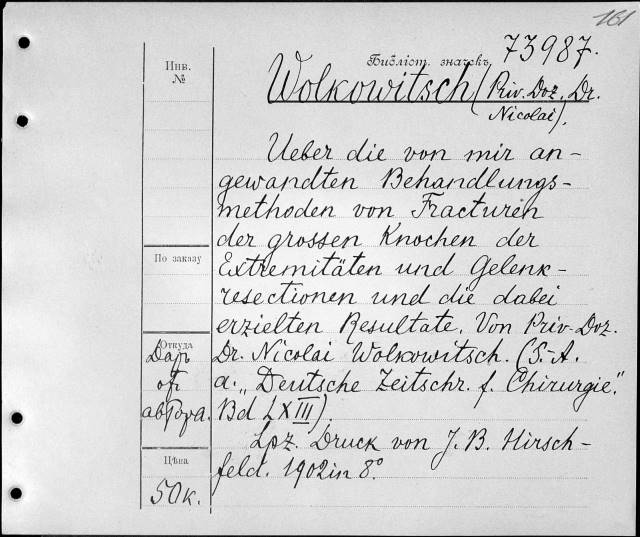 161
Библіот. значекъ 73987.
Инв.
№
Wolkowitsch (Priv. Doz. Dr.
Nicolai).
Ueber die von mir an-
gewandten Behandlungs-
methoden von Fracturen
der grossen Knochen der
По заказу
Extremitäten und Gelenk-
resectionen und die dabei
erzielten Resultate. Von Priv-Doz.
Откуда
Даръ
отъ
автора.
Dr. Nicolai Wolkowitsch. (S.-A.
a. „Deutsche Zeitschr. f. Chirurgie."
Bd LXIII).
Lpz. Druck von J. B. Hirsch-
feld. 1902 in 8°.
Цѣна
50к.